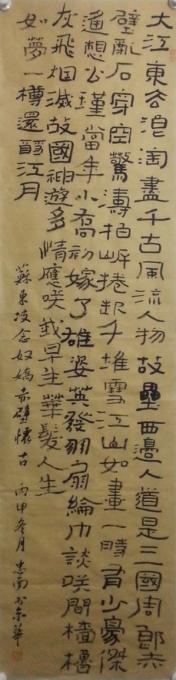 大江東去浪淘盡千古風流人物故壘西邊人道是三國周郎赤
壁亂石穿空驚濤拍岸捲起千堆雪江山如畫一時多少豪傑
遙想公瑾當年小喬初嫁了雄姿英發羽扇綸巾談笑間檣櫓
灰飛烟滅故國神遊多情應笑我早生華髮人生
如夢一樽還酹江月
蘇東坡念奴嬌赤壁懷古 丙申冬月